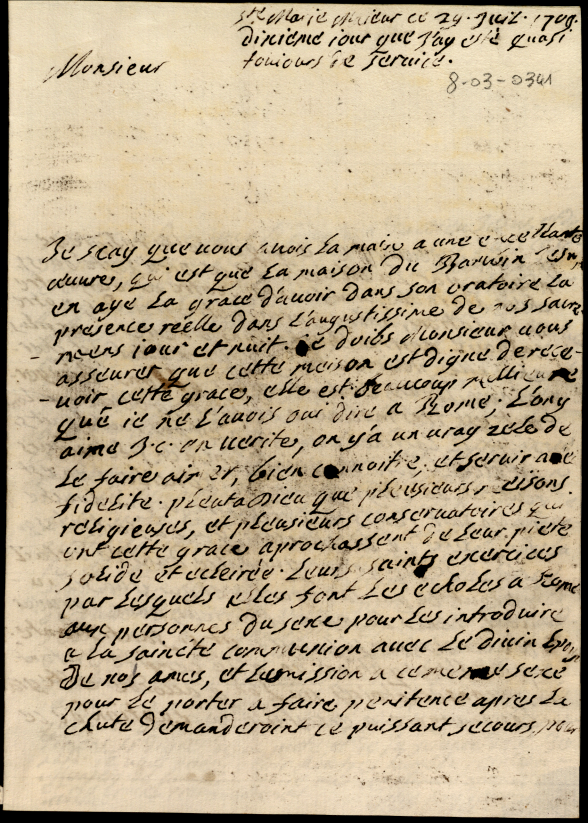 Ste Marie Mieur ce 29. Juil. 1708.
dixieme jour que J'ay esté quasi
toujours ce service.
8-03-0341
Monsieur
Je scay que vous avois la main a une excellante
œuvre, qui est que la maison du Bamvin
en aye la grace d'avoir dans son oratoire la
presence reelle dans l'augustissime de nos sacre
mens jour et nuit. Je doibs Monsieur vous
asseurer que cette maison est digne de rece-
voir cette grace, elle est beaucoup meilleure
que je ne l'avois oui dire a Rome, L'on y
aime J. c. en verité, on y a un vray zele de
le faire aimer, bien connoitre, et servir avec
fidelité. pleut a Dieu que pleusieurs maisons
religieuses, et pleusieurs conservatoires qui
ont cette grace aprochassent de leur pieté
solide et ecleirée. Leurs saints exercices
par lesquels elles font les echoles a Rome
aux personnes du sexe pour les introduire
a la saincte communion avec le divin Epoux
De nos ames, et la mission a ce meme sexe
pour le porter a faire penitence apres la
chute demanderoint ce puissant secours, pour